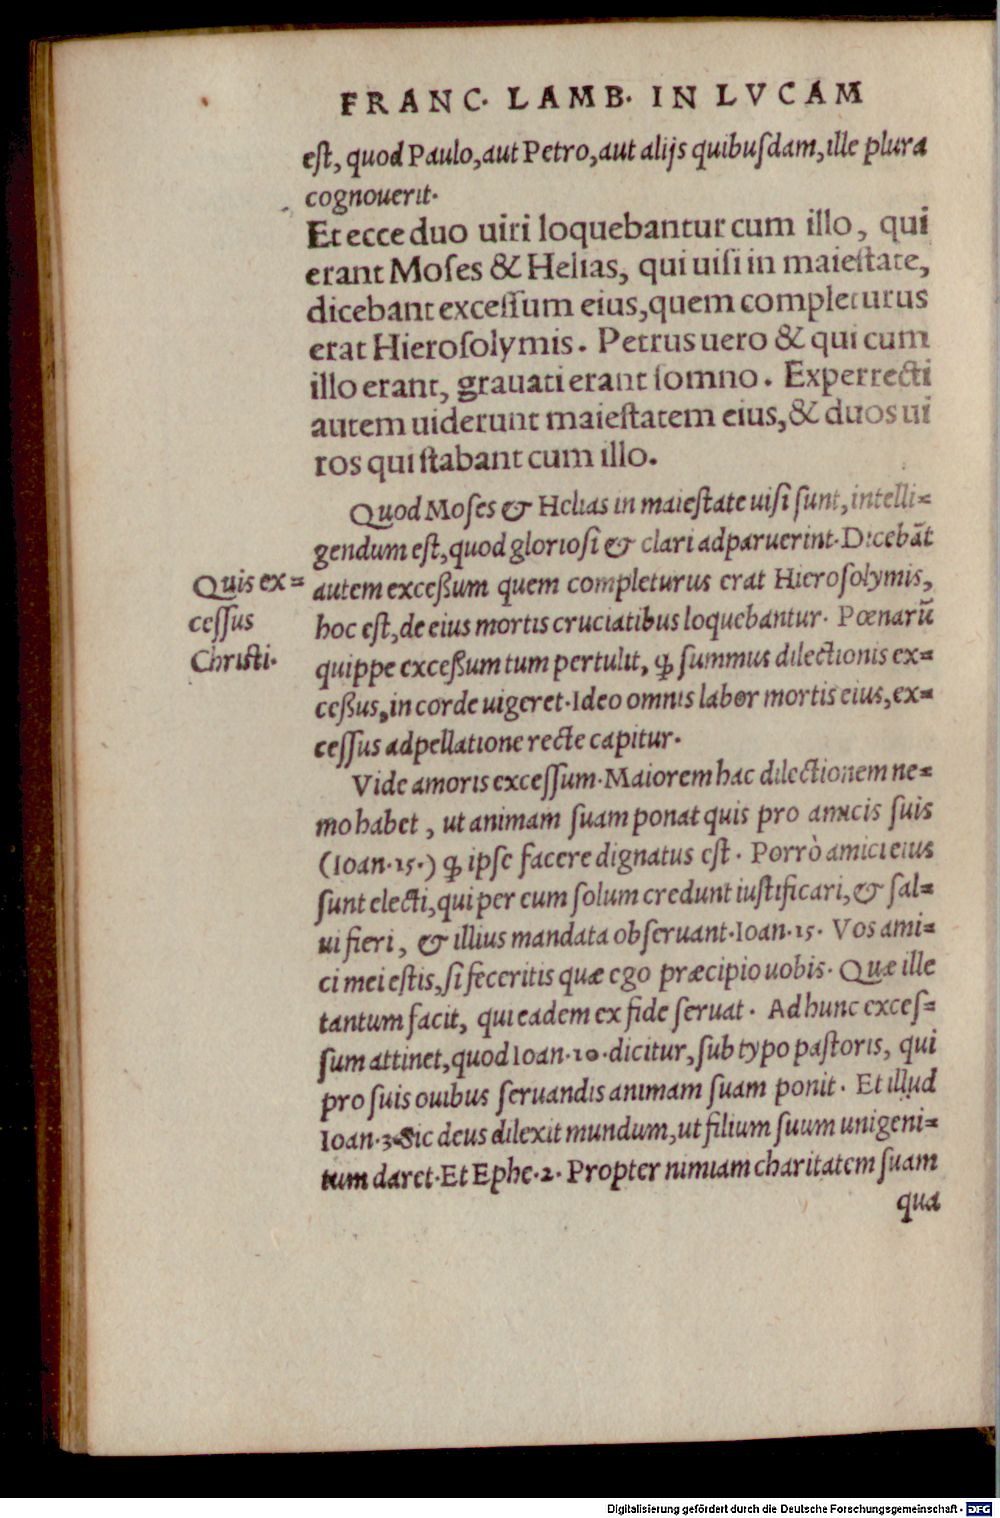 FRANC. LAMB. IN LVCAM
eſt, quod Paulo, aut Petro, aut alijs quibuſdam, ille plura
cognouerit.
Et ecce duo uiri loquebantur cum illo, qui
erant Moſes & Helias, qui uiſi in maieſtate,
dicebant exceſſum eius, quem completurus
erat Hieroſolymis. Petrus uero & qui cum
illo erant, grauati erant ſomno. Experrecti
autem uiderunt maieſtatem eius, & duos ui
ros qui ſtabant cum illo.
Quod Moſes & Helias in maieſtate uiſi ſunt, intelli=
gendum eſt, quod glorioſi & clari adparuerint. Dicebāt
Quis ex=
ceſſus
Chriſti.
autem exceßum quem completurus erat Hieroſolymis,
hoc eſt, de eius mortis cruciatibus loquebantur. Pœnarū
quippe exceßum tum pertulit, ꝙ ſummus dilectionis ex=
ceßus, in corde uigeret. Ideo omnis labor mortis eius, ex=
ceſſus adpellatione recte capitur.
Vide amoris exceſſum. Maiorem hac dilectionem ne=
mo habet, ut animam ſuam ponat quis pro amicis ſuis
(Ioan. 15.) ꝙ ipſe facere dignatus eſt. Porrò amici eius
ſunt electi, qui per eum ſolum credunt iuſtificari, & ſal=
ui fieri, & illius mandata obſeruant. Ioan. 15. Vos ami=
ci mei eſtis, ſi feceritis quæ ego præcipio uobis. Quæ ille
tantum facit, qui eadem ex fide ſeruat. Ad hunc exceſ=
ſum attinet, quod Ioan. 10. dicitur, ſub typo paſtoris, qui
pro ſuis ouibus ſeruandis animam ſuam ponit. Et illud
Ioan. 3. Sic deus dilexit mundum, ut filium ſuum unigeni=
tum daret. Et Ephe. 2. Propter nimiam charitatem ſuam
qua
Digitalisierung gefördert durch die Deutsche Forschungsgemeinschaft - DFG